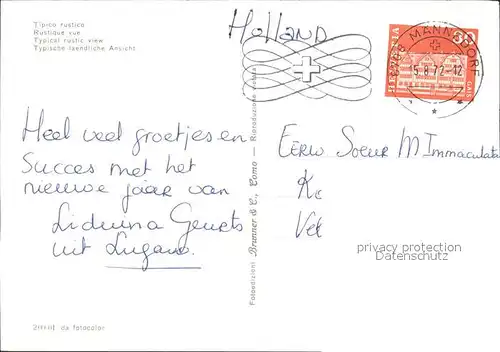 Tipico rustico
Rustique vue
Typical rustic view
Typische laendliche Ansicht
Holland
8708 MÄNNEDORF
15.8.72-12
HELVETIA
30
GAIS
Heel veel groetjes en
succes met het
nieuwe jaar van
Liduina Geurts
uit Lugano.
Eerw Soeur M Immaculata
Ke
Vel
privacy protection
Datenschutz
Fotoedizioni Brunner & C., Como - Riproduzione vietata
da fotocolor